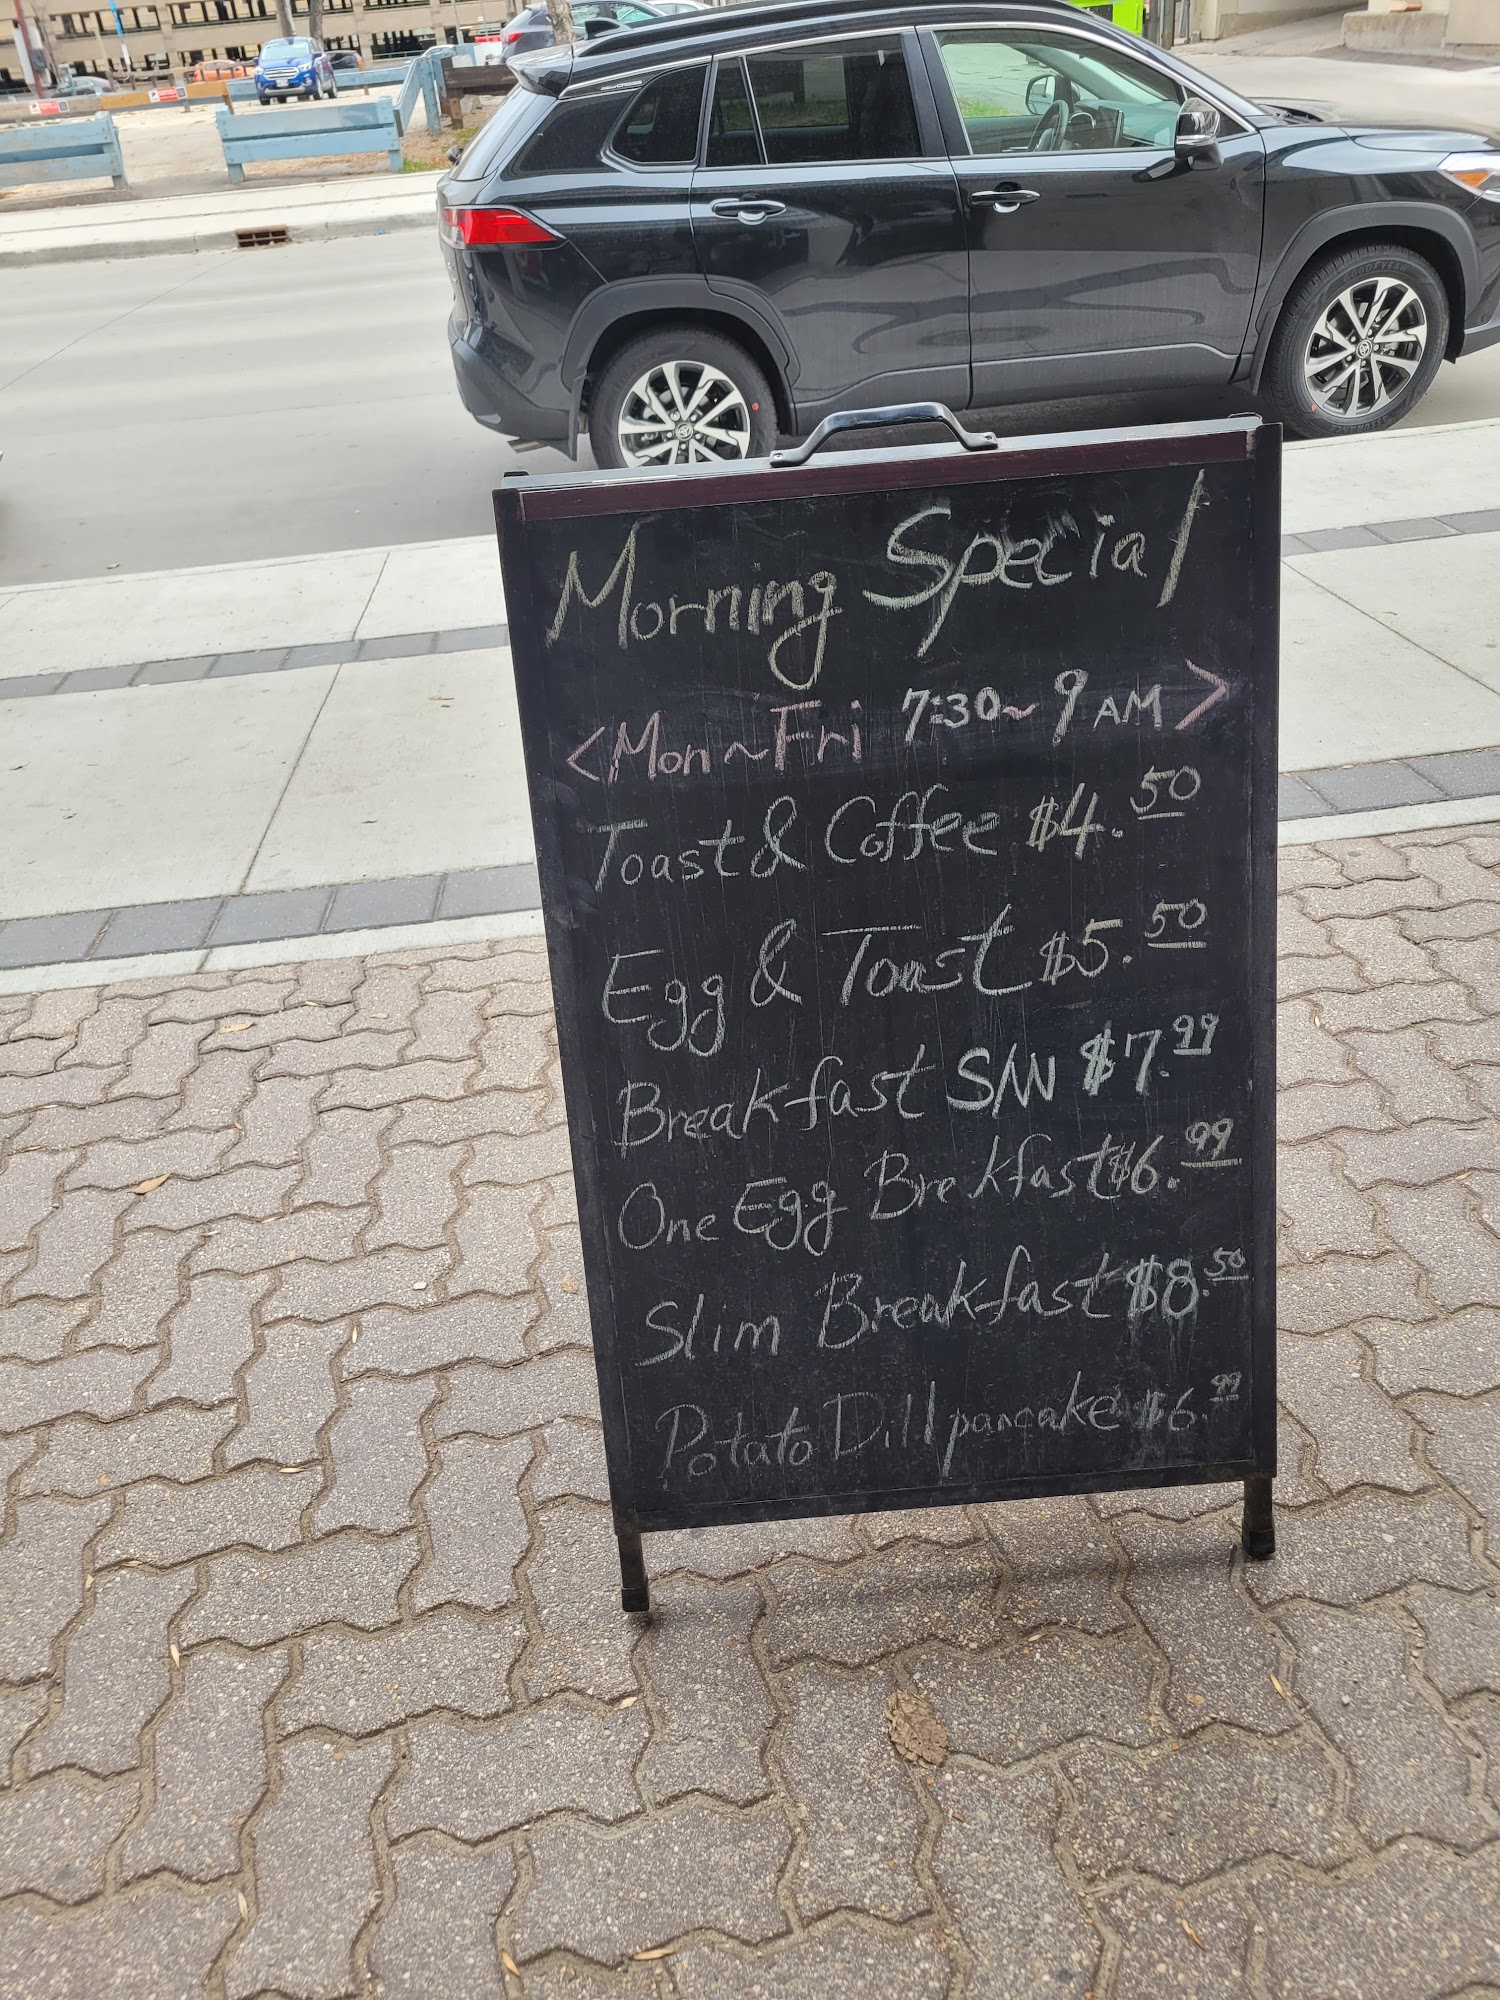 Morning Special
<Mon~Fri 7:30~9 AM>
Toast & Coffee $4.50
Egg & Toast $5.50
Breakfast S/W $7.99
One Egg Brekfast $6.99
Slim Breakfast $8.50
Potato Dill pancake $6.99